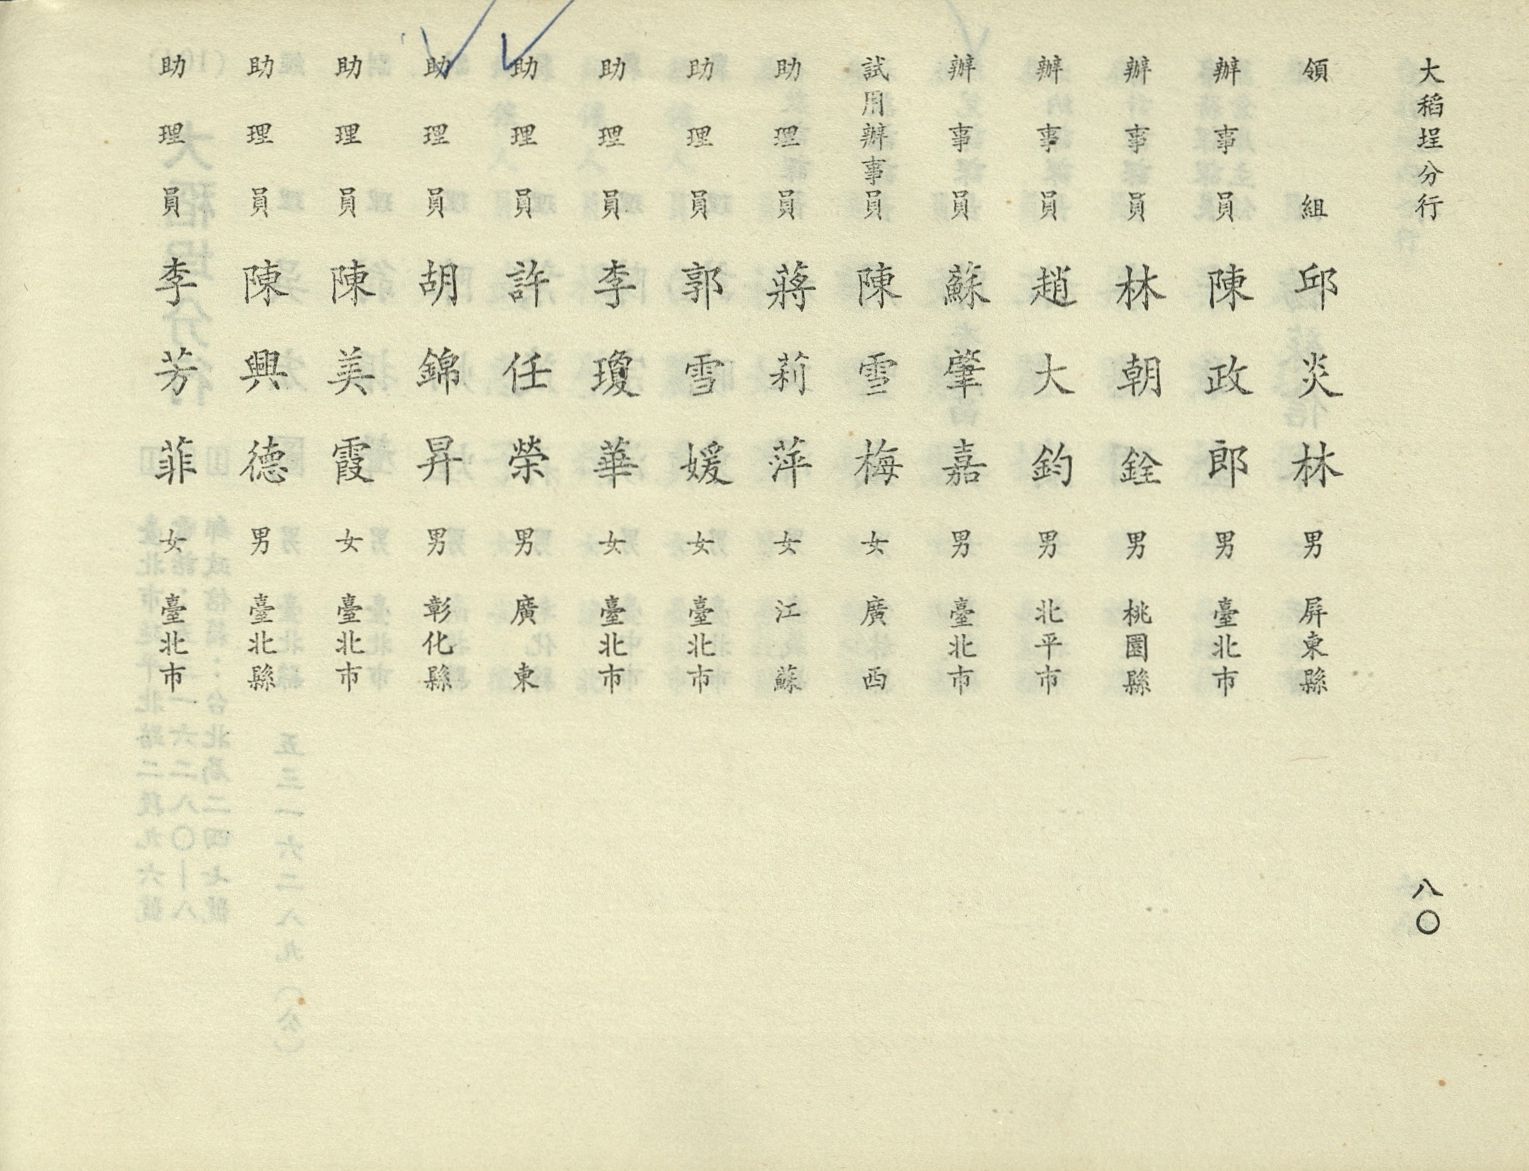 大稻埕分行
八〇
領組 邱炎林 男 屏東縣
辦事員 陳政郎 男 臺北市
辦事員 林朝銓 男 桃園縣
辦事員 趙大鈞 男 北平市
辦事員 蘇肇嘉 男 臺北市
試用辦事員 陳雪梅 女 廣西
助理員 蔣莉萍 女 江蘇
助理員 郭雪媛 女 臺北市
助理員 李瓊華 女 臺北市
助理員 許任榮 男 廣東
助理員 胡錦昇 男 彰化縣
助理員 陳美霞 女 臺北市
助理員 陳興德 男 臺北縣
助理員 李芳菲 女 臺北市